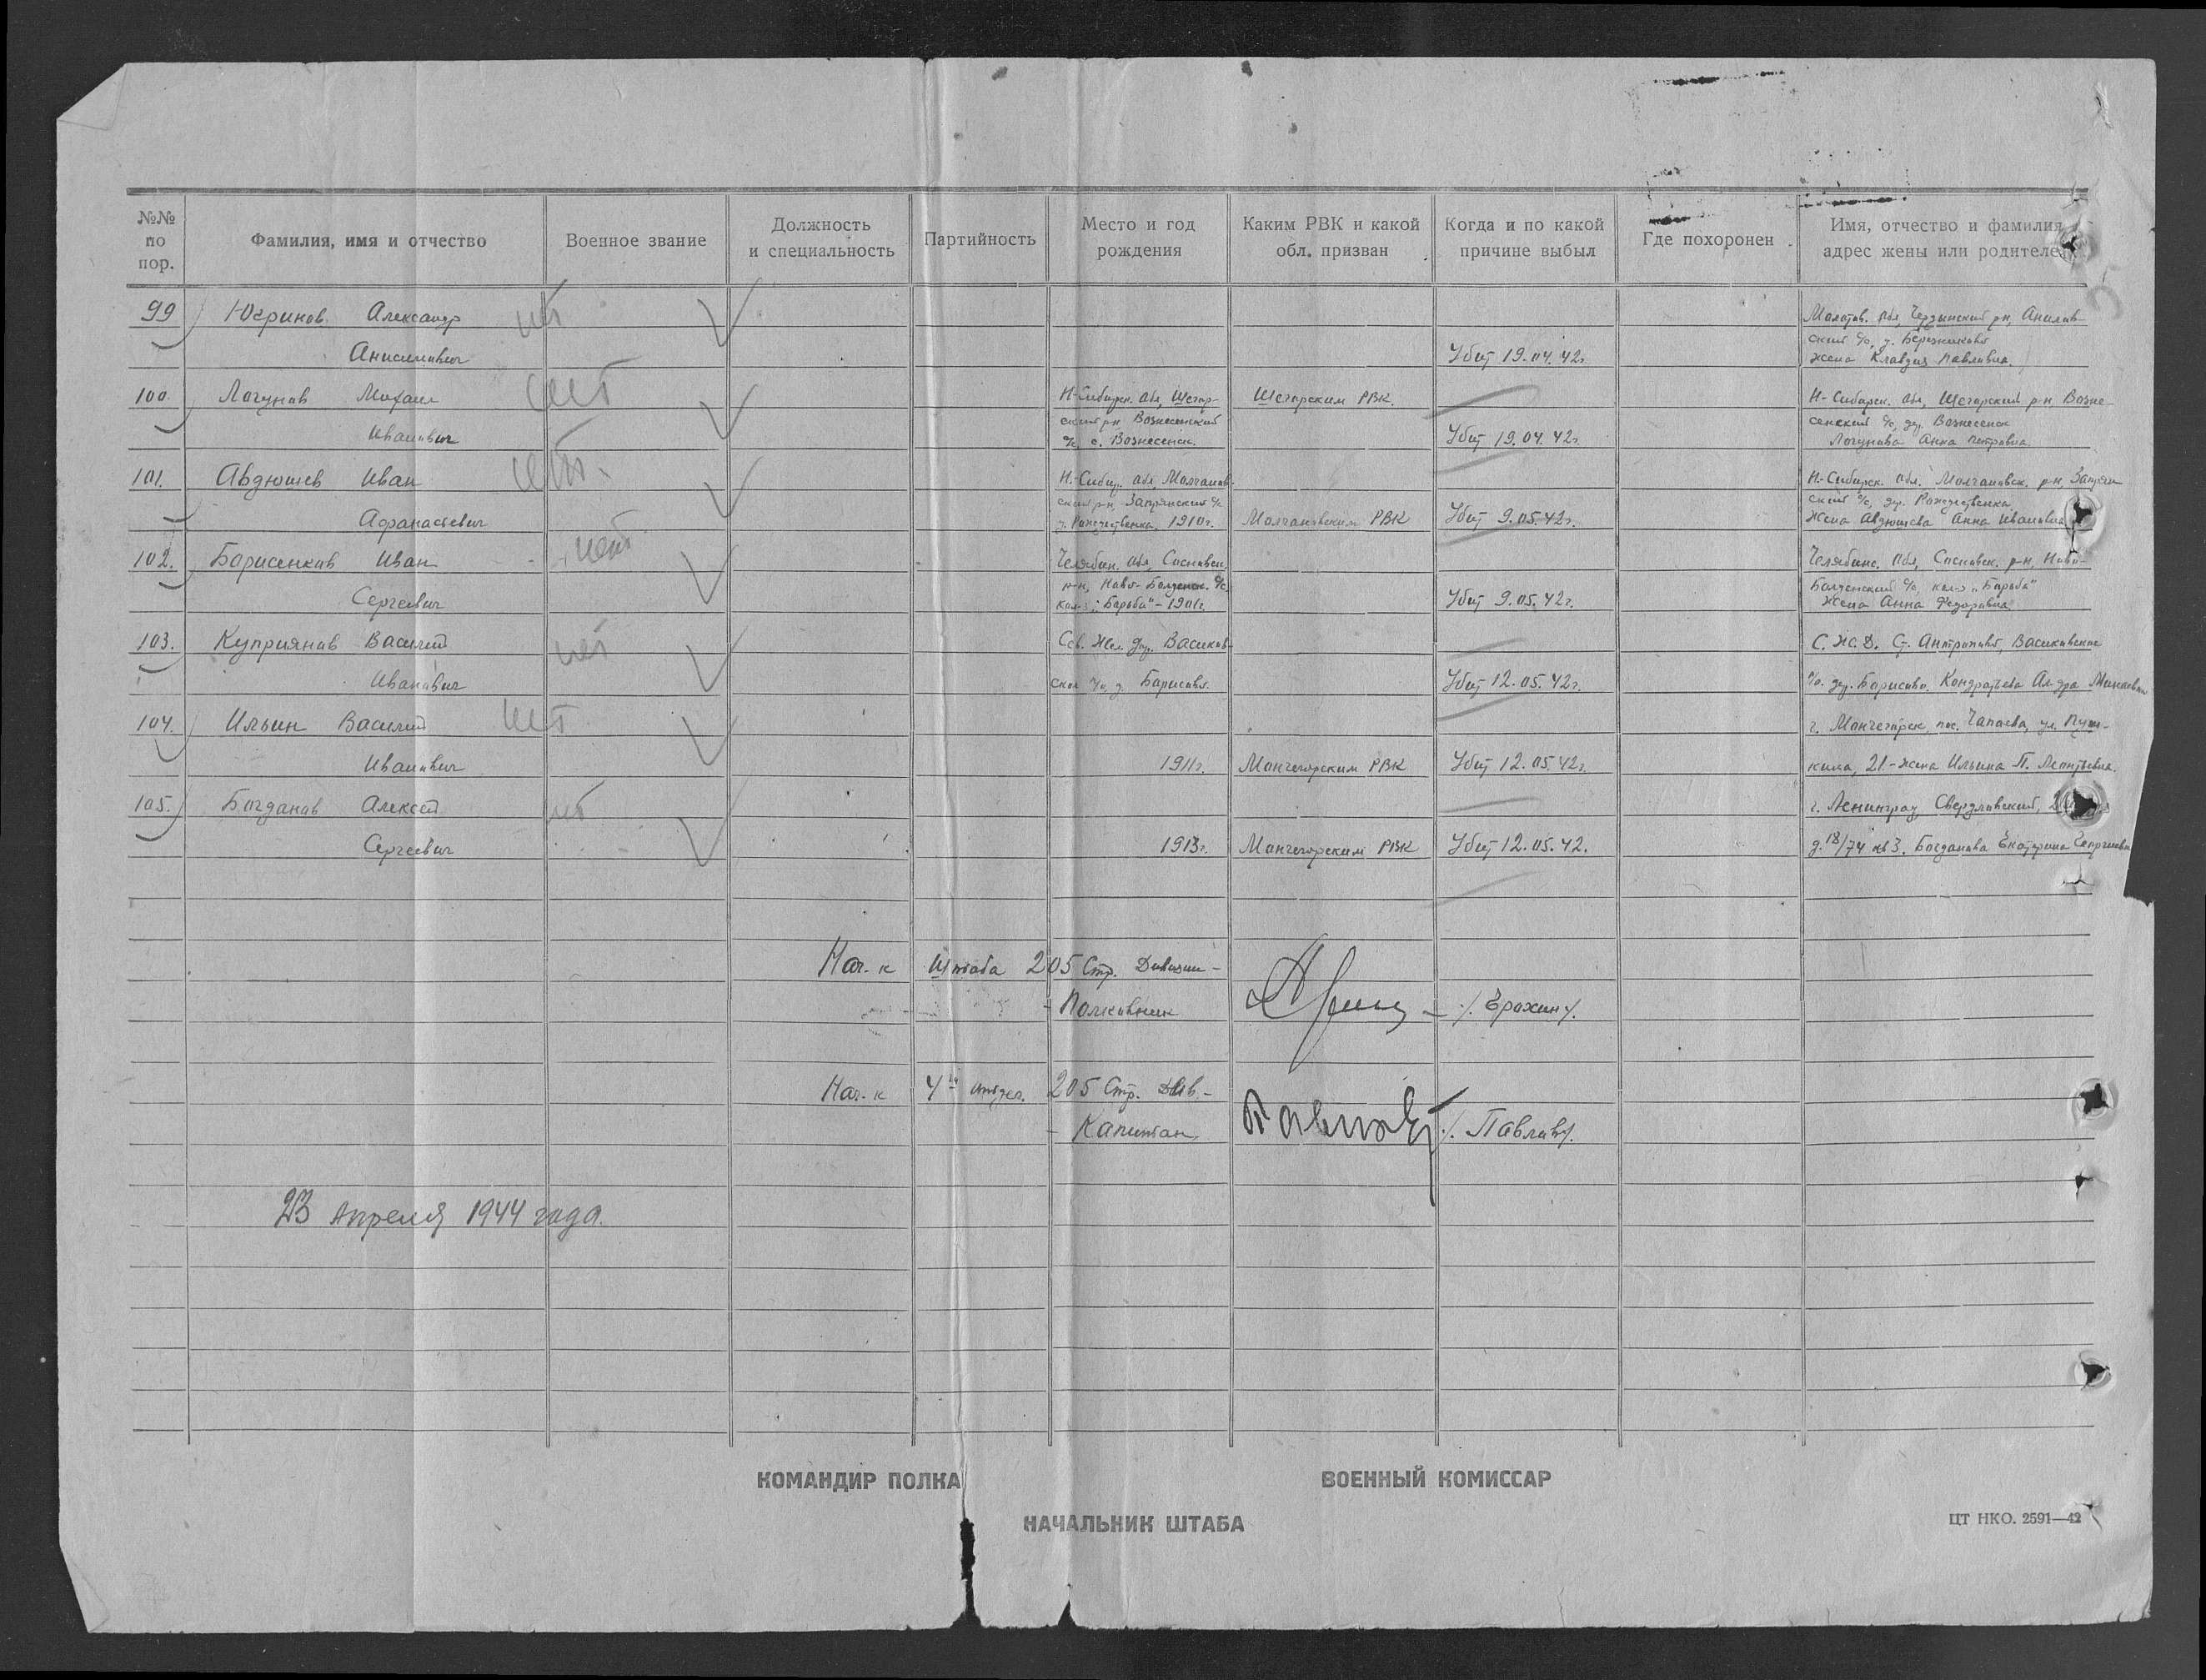 №№ по пор.
Фамилия, имя и отчество
Военное звание
Должность и специальность
Партийность
Место и год рождения
Каким РВК и какой обл. призван
Когда и по какой причине выбыл
Где похоронен
Имя, отчество и фамилия адрес жены или родителей
99 Югринов Александр нет Молотов. обл, Чердынский рн,
Анисимович Убит 19.04.42г. жена Клавдия Павловна.
100. Логунов Михаил нет Н-Сибирск. обл, Шегар- Шегарским РВК. Н-Сибирск. обл, Шегарский р-н Возне-
ский р-н Вознесенский сенский с/с, дер. Вознесенск
Иванович с/с, с. Вознесенск. Убит 19.04.42г. Логунова Анна Петровна
101. Авдюшев Иван нет Н.-Сибир. обл, Молчанов- Н.-Сибирск. обл. Молчановск. р-н,
ский р-н, с/с ский с/с, дер. Рождественка
Афанасьевич д. Рождественка, 1910г. Молчановским РВК Убит 9.05.42г. Жена Авдюшева Анна Ивановна
102. Борисенков Иван нет Челябин. обл, Сосновск. Челябинс. обл, Сосновск. р-н, Ново-
р-н, Ново- с/с, с/с, кол-з „Борьба"
Сергеевич кол-з „Борьба" - 1901г. Убит 9.05.42г. Жена Анна Федоровна.
103. Куприянов Василий нет Сев. Жел. дор. Васиков- С.Ж.Д. Ст. Антропово, Васиковский
Иванович ский с/с, д. Борисово. Убит 12.05.42г. с/с. дер. Борисово. Кондратьева Ал-дра
104. Ильин Василий нет г. Мончегорск, пос. Чапаева, ул. Пуш-
Иванович 1911г. Мончегорским РВК Убит 12.05.42г. кина, 21.-жена Ильина П. Леонтьевна.
105. Богданов Алексей нет г. Ленинград, Свердловский,
Сергеевич 1913г. Мончегорским РВК Убит 12.05.42. д. 18/74 кв 3. Богданова Екатерина Георгиевна
Нач-к Штаба 205 Стр. Дивизии -
- Полковник - /. Ерохин/.
Нач-к 4го отдел. 205 Стр. Див -
- Капитан, Павлов /. Павлов/.
23 Апреля 1944 года.
КОМАНДИР ПОЛКА
ВОЕННЫЙ КОМИССАР
НАЧАЛЬНИК ШТАБА
ЦТ НКО. 2591—42